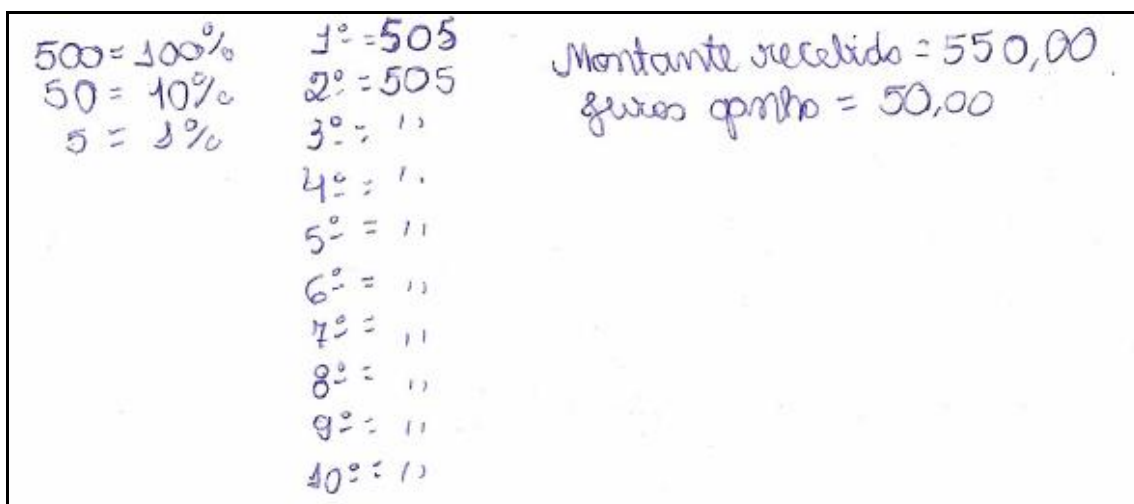 500 = 100%
50 = 10%
5 = 1%
1º = 505
2º = 505
3º = ''
4º = ''
5º = ''
6º = ''
7º = ''
8º = ''
9º = ''
10º = ''
Montante recebido = 550,00.
Juros ganho = 50,00